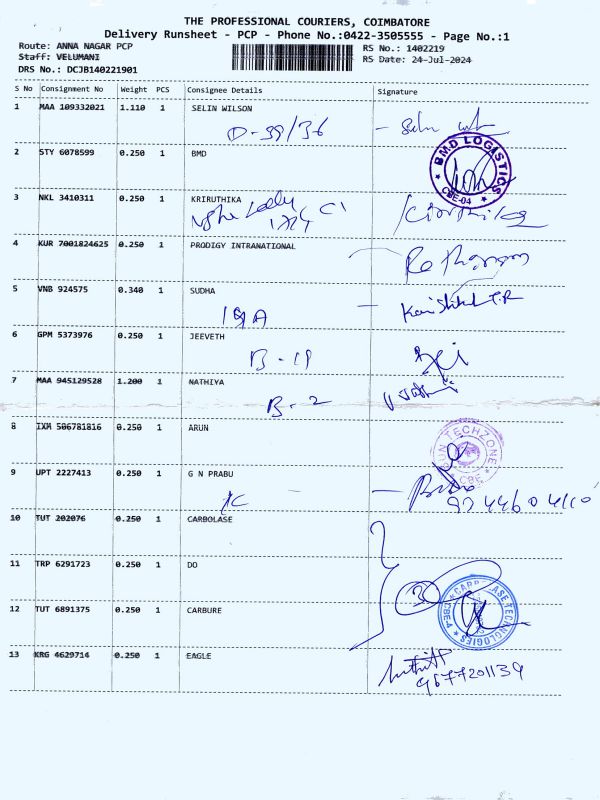 THE PROFESSIONAL COURIERS, COIMBATORE
Delivery Runsheet - PCP - Phone No.:0422-3505555 - Page No.:1
Route: ANNA NAGAR PCP
RS No.: 1402219
Staff: VELUMANI
RS Date: 24-Jul-2024
DRS No.: DCJB140221901
S No Consignment No Weight PCS Consignee Details Signature
1 MAA 109332021 1.110 1 SELIN WILSON
D-39/36
2 STY 6078599 0.250 1 BMD
BMD LOGISTICS
CBE-04
3 NKL 3410311 0.250 1 KRIRUTHIKA
Kiruthika
4 KUR 7001824625 0.250 1 PRODIGY INTRANATIONAL
5 VNB 924575 0.340 1 SUDHA
19A
6 GPM 5373976 0.250 1 JEEVETH
B-19
7 MAA 945129528 1.200 1 NATHIYA
B-2
8 IXM 506781816 0.250 1 ARUN
SUN TECHZONE
CBE
9 UPT 2227413 0.250 1 G N PRABU
10 TUT 202076 0.250 1 CARBOLASE
11 TRP 6291723 0.250 1 DO
12 TUT 6891375 0.250 1 CARBURE
TECHNOLOGIES
CBE-4
13 KRG 4629714 0.250 1 EAGLE
9677201139